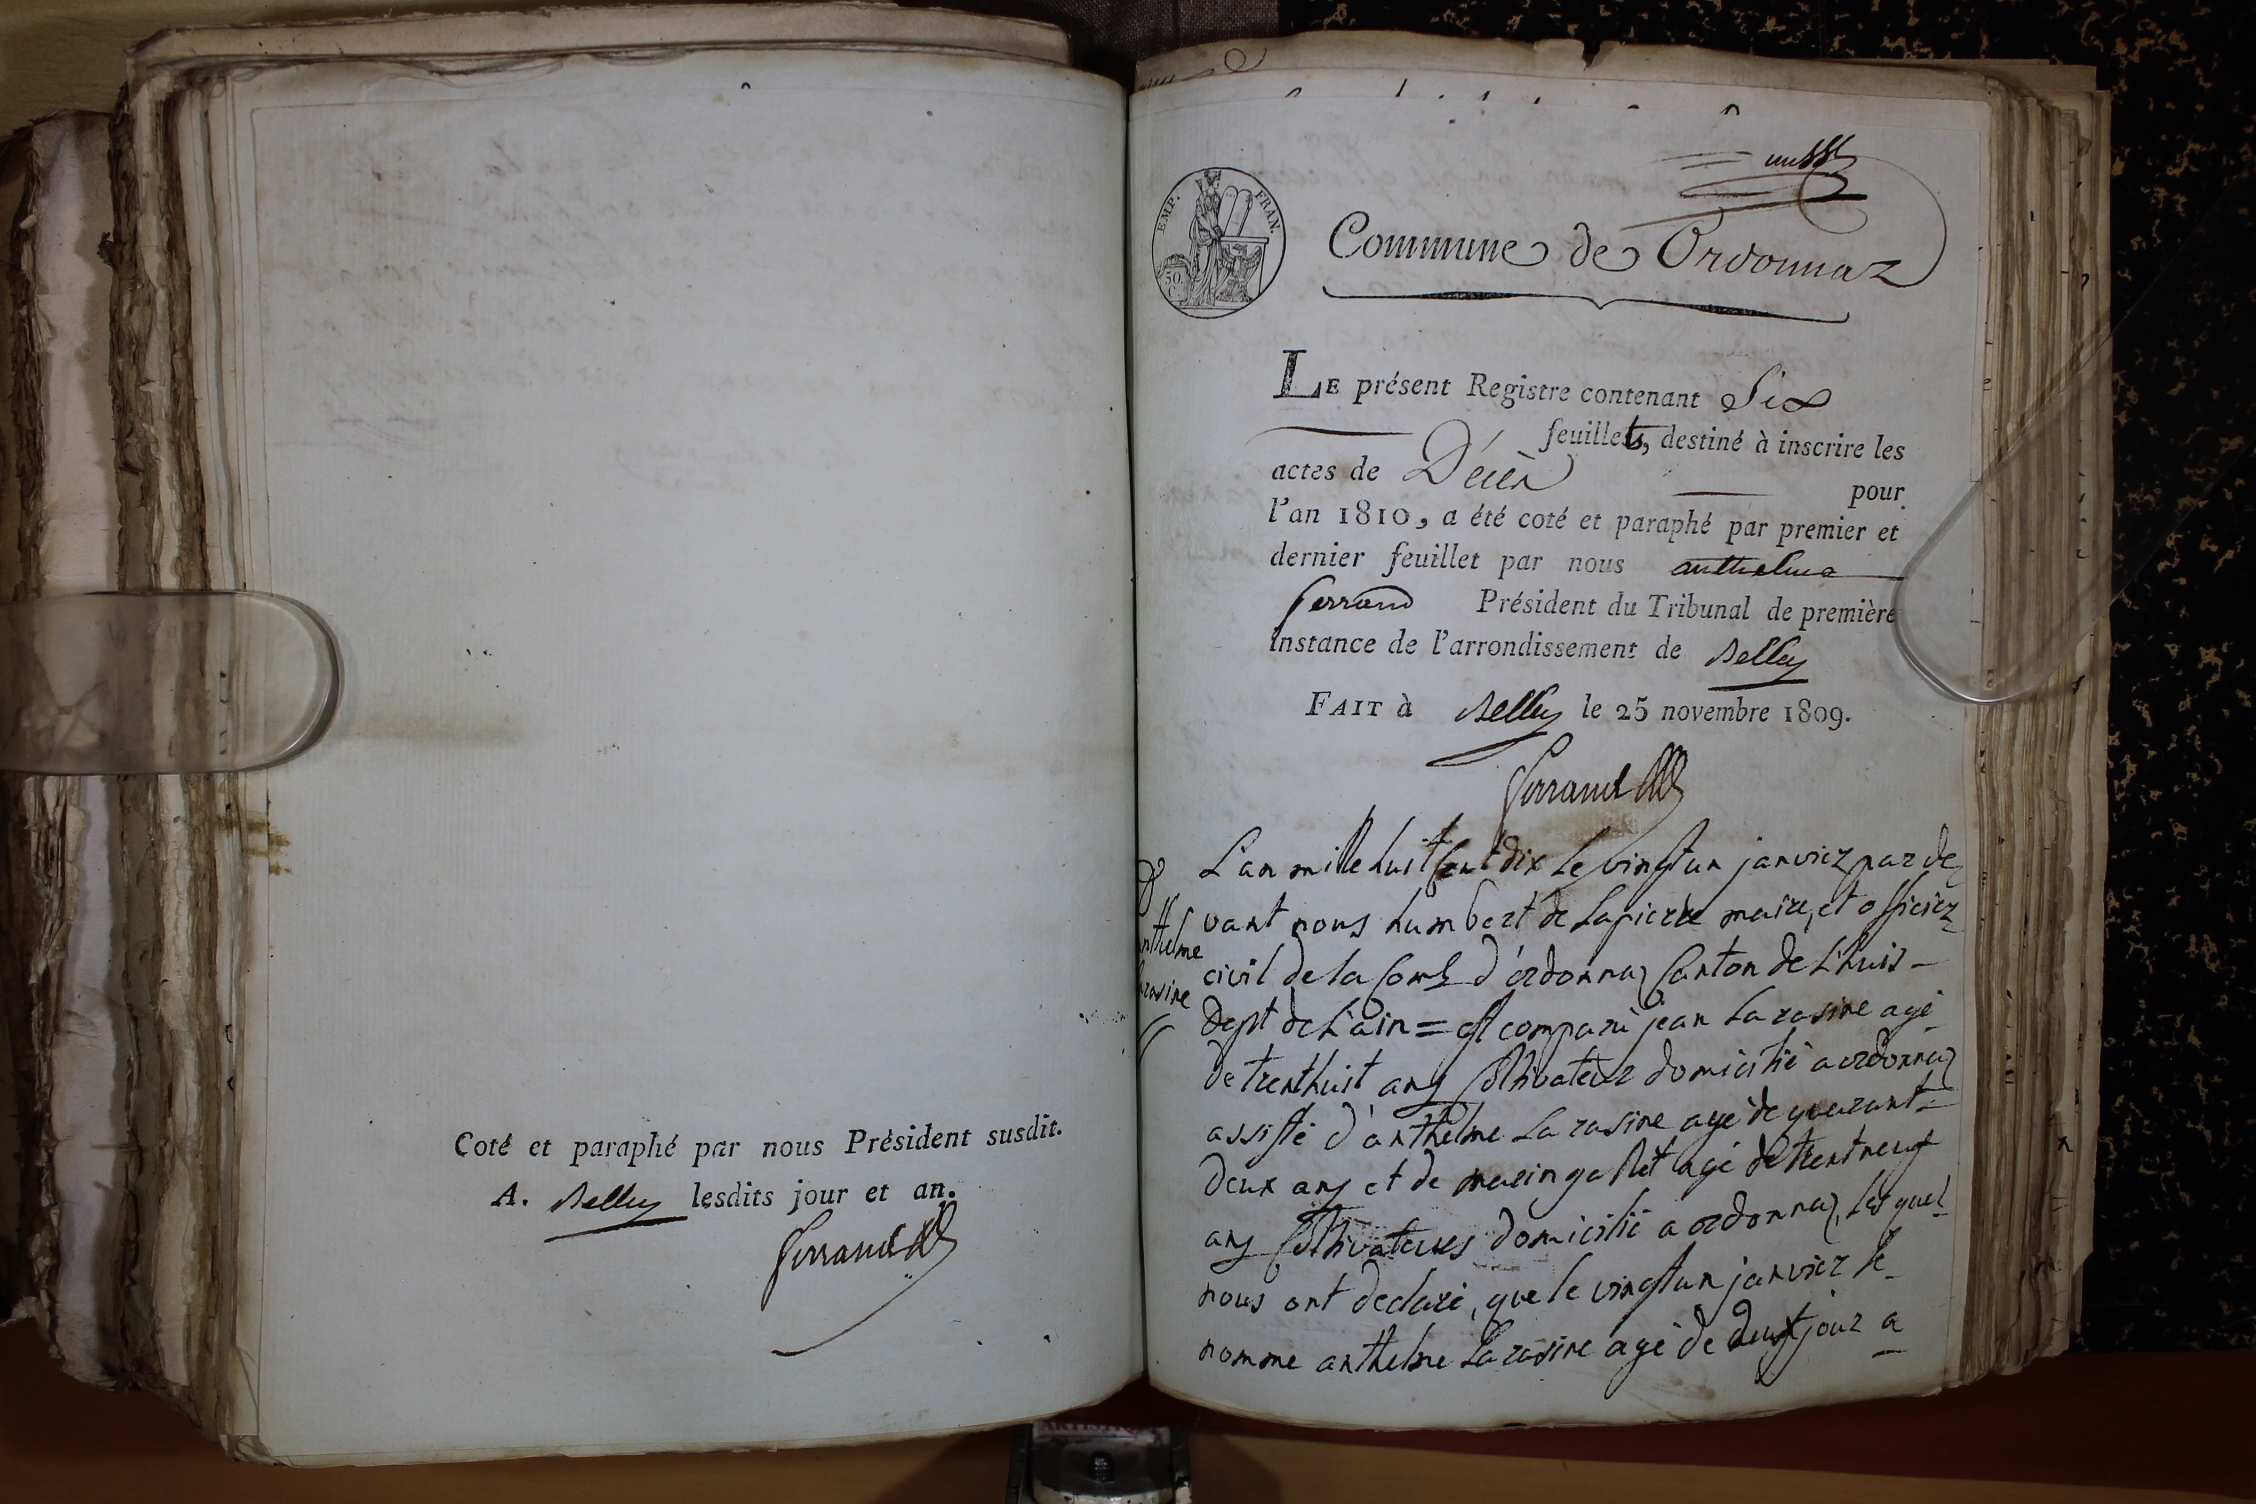 Coté et paraphé par nous Président susdit.
A. Belley lesdits jour et an.
Ferrand
EMP. FRAN.
50 C.
Commune de Ordonnaz
LE présent Registre contenant Six
feuillets, destiné à inscrire les
actes de Décès pour
l'an 1810, a été coté et paraphé par premier et
dernier feuillet par nous anthelme
ferrand Président du Tribunal de première
instance de l'arrondissement de Belley
FAIT à Belley le 25 novembre 1809.
Ferrand
nthelme
arasine
L'an mille huit Cent dix le vingt un janvier par de
vant nous humbert de Lapierre maire, et officier
civil de la Com d'ordonnaz Canton de L'huis -
Dept de L'ain = est comparu jean Larasine agé
de trenthuit ans Cultivateur domicilié a ordonnaz
assisté d'anthelme Larasine agé de quarant-
deux ans et de marin gallet agé de trentneuf
ans Cultivateurs domicilié a ordonnaz, les quel
nous ont declaré, que le vingt un janvier le
nommé anthelme Larasine agé de deux jour a